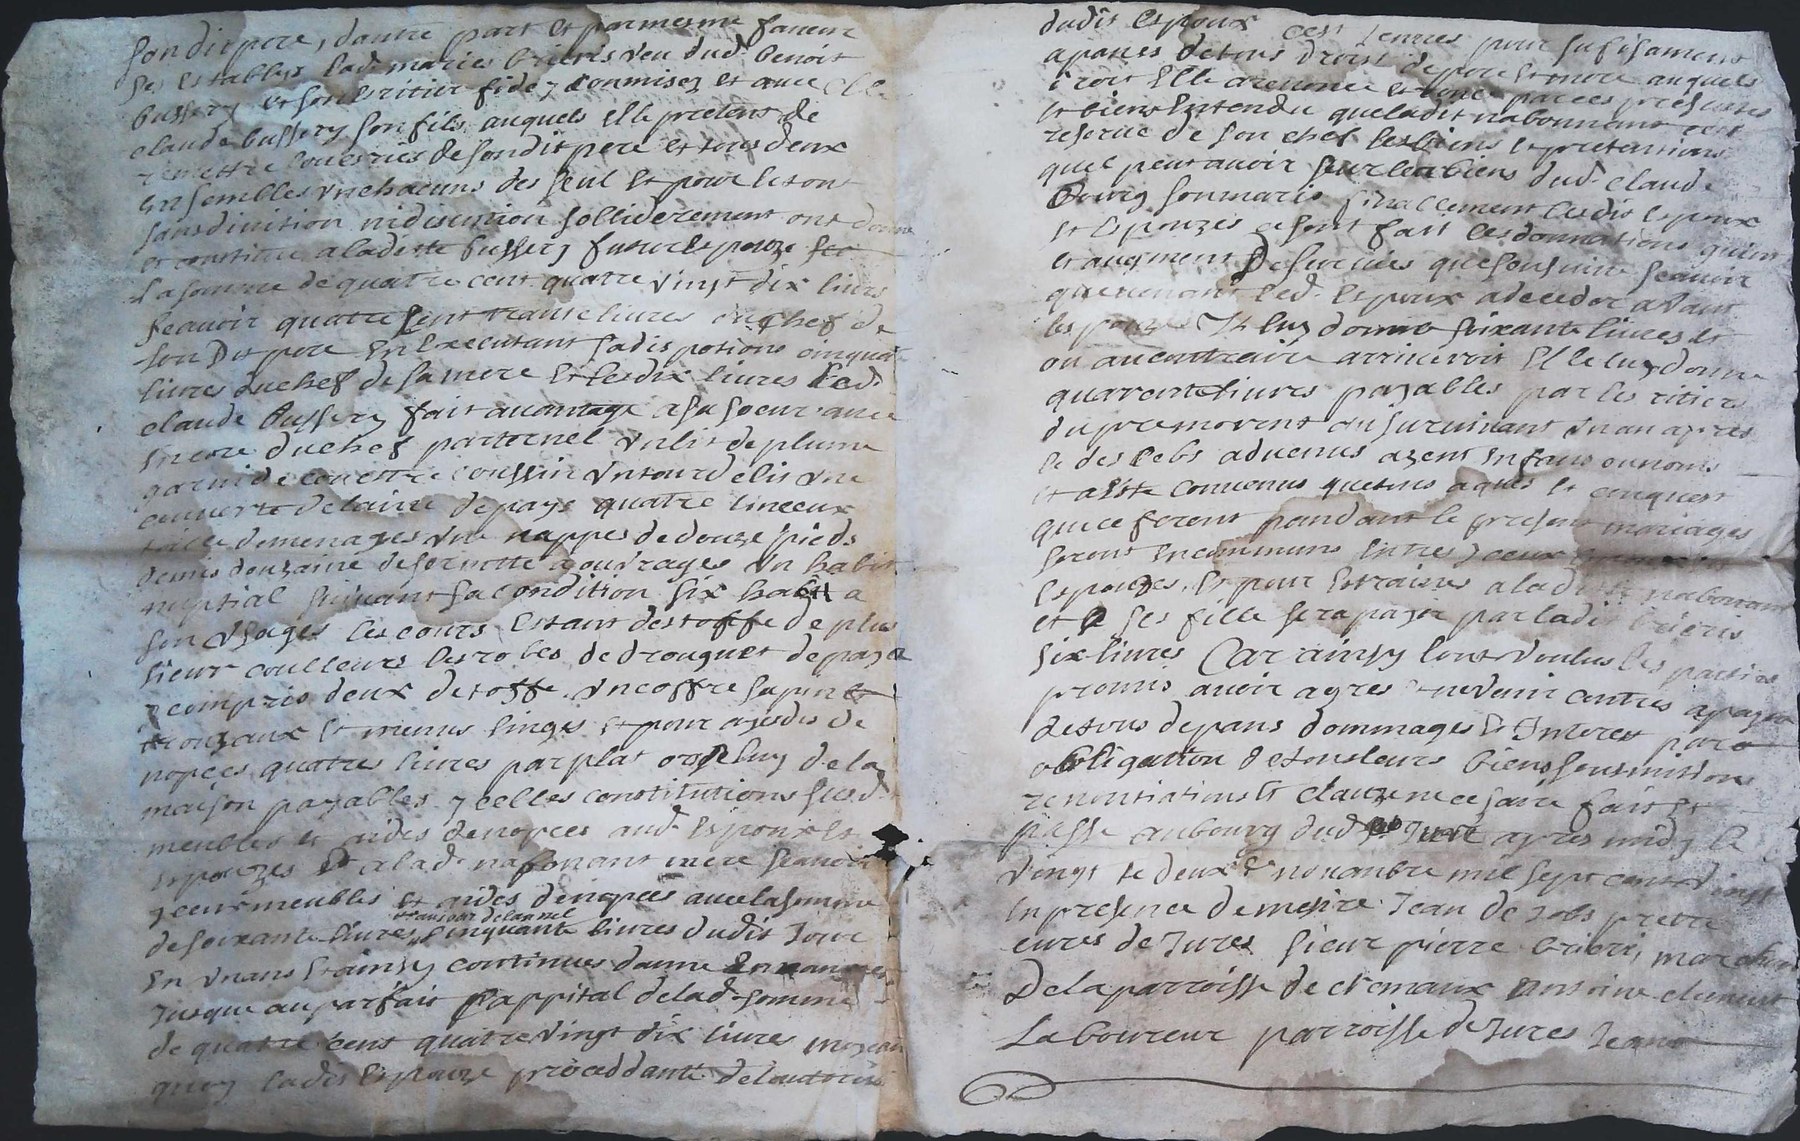 son dit pere, dautre part et par mesme faveur
ses establys lad. marie brieris veu dud. benoit
bussery et son eritier fidey commisez et avec elle
claude bussery son fils auquels elle pretens de
remettre de son dit pere et tous deux
ensembles un chacuns des seul et pour le tout
sans divition ni disention solliderement ont donne
et constitue a ladette bussery future espouze
la somme de quatre cent quatre vingt dix livres
scavoir quatre cent trante livres du chef de
son dit pere en executant sa dispotions cinquante
livres du chef de sa mere et les dix livres led.
claude bussery fait avantage a sa soeur avec
encore du chef parternel un lit de plume
garni de couettre coussin un tour de lis une
couverte de laine de pays quatre linceux
toille de menages une nappes de douze pieds
demis douzaine de serviette a ouvrages un habit
nuptial suivant sa condition six habit a
son usages les cours estant destoffe de plu
sieur coulleurs les robes de drouguet de pays
y compris deux destoffe un coffre sapin
trouzaux et menus linges et pour aydes de
nopces quatres livres par plat or de luy de la
maison payables ycelles constitutions susd.
meubles et aides de nopces aud. espoux et
espouzes et a lad. nabonant mere scavoir
yceux meubles et aides de nopces avec la somme
de soixante livres cinquante livres dudit jour
en un ans et ainsy continues danne en annees
jusque au parfait pappital de lad. somme
de quatre cent quatre vingt dix livres moyen
quoy ladit espouze proceddante de lautorite
dudit espoux cest tenues pour sufisament
apanes de tous droit de pere et mere auquels
droit elle a renonce et renonce par ces presentes
et bien entendu que ladit nabonnant cest
reserve de son chef les biens et pretentions
quel peut avoir sur les biens dud. claude
bourg son maris finallement lesdis espoux
et espouzes ce sont fait les donnations quien
et augment de survies que sous suivent scavoir
que venant led. espoux a deceder avant
lespouze il luy donne soixante livres et
ou au contraire arriveroit elle luy donne
quarente livres payables par les ritiers
du premorent au survivant un an apres
le des cebs advenus ayent enfans ou nons
et a este convenus que tous aques et conquest
qui ce feront pandant le present mariages
seront en communs entres yceux
espouzes et pour estraines a ladit nabonant
et ses fille sera payer par ladit brieris
six livres Car ainsy lont voulus les parties
promis avoir agres et ne venir contres a payne
de tous depans dommages et interest par
obligation de tous leurs biens sousmitions
renontiations et clauze necesaire fait et
passe au bourg dud. jure apres midy le
vingt de deux e novambre mil sept cent vingt
en presence de mesire jean de prettre
cures de jures sieur pierre brieri marchand
de la parroisse de cremaux antoine clement
laboureur parroisse de jures jean